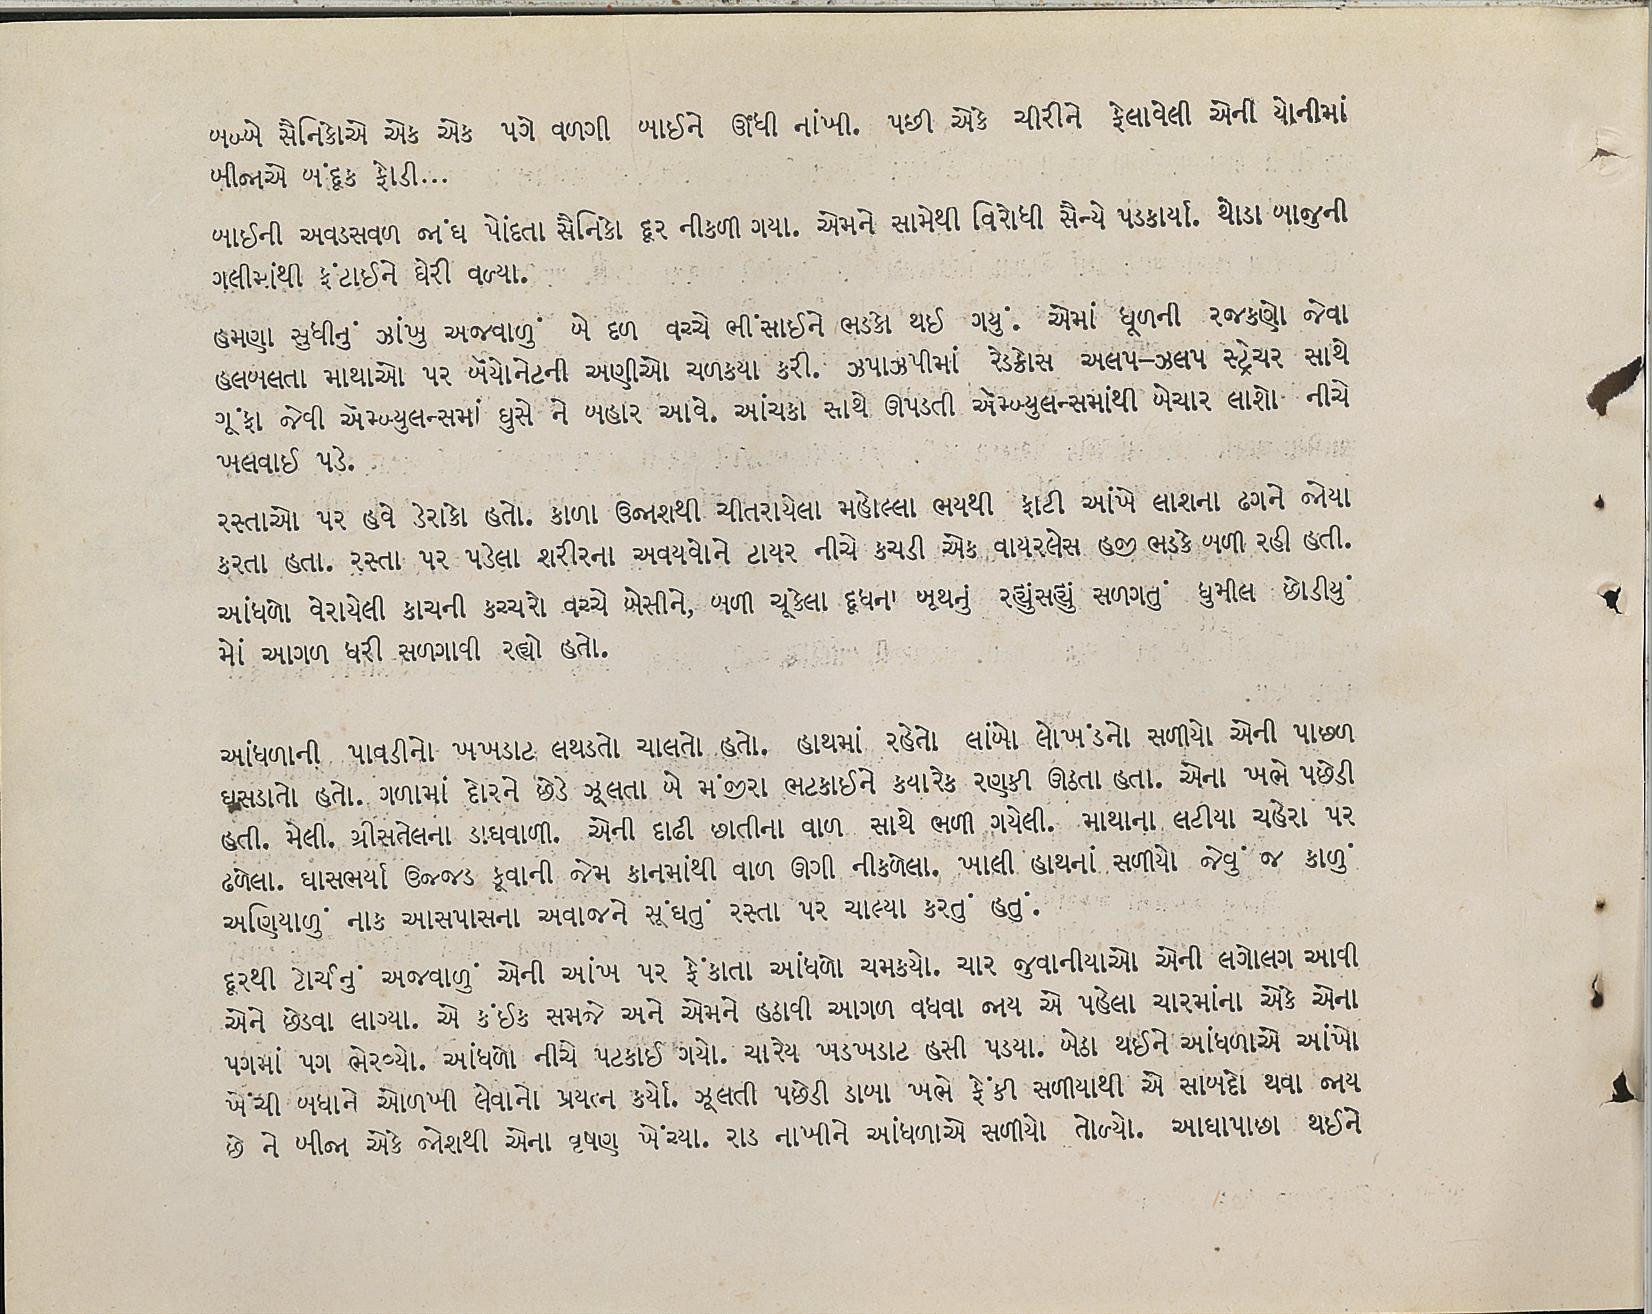 બબ્બે સૈનિકોએ એક એક પગે વળગી બાઈને ઊંધી નાંખી. પછી એકે ચીરીને ફેલાવેલી એની યોનીમાં
બીજાએ બંદૂક ફોડી...
બાઈની અવડસવળ જાંઘ પોંદતા સૈનિકો દૂર નીકળી ગયા. એમને સામેથી વિરોધી સૈન્યે પડકાર્યા. થોડા બાજુની
ગલીમાંથી ફંટાઈને ઘેરી વળ્યા.
હમણા સુધીનું ઝાંખુ અજવાળું બે દળ વચ્ચે ભીંસાઈને ભડકો થઈ ગયું. એમાં ધૂળની રજકણો જેવા
હલબલતા માથાઓ પર બૅયોનેટની અણીઓ ચળકયા કરી. ઝપાઝપીમાં રેડક્રોસ અલપ–ઝલપ સ્ટ્રેચર સાથે
ગૂંફા જેવી ઍમ્બ્યુલન્સમાં ઘુસે ને બહાર આવે. આંચકા સાથે ઊપડતી ઍમ્બ્યુલન્સમાંથી બેચાર લાશો નીચે
ખલવાઈ પડે.
રસ્તાઓ પર હવે ડેરાકો હતો. કાળા ઉજાશથી ચીતરાયેલા મહોલ્લા ભયથી ફાટી આંખે લાશના ઢગને જોયા
કરતા હતા. રસ્તા પર પડેલા શરીરના અવયવોને ટાયર નીચે કચડી એક વાયરલેસ હજી ભડકે બળી રહી હતી.
આંધળો વેરાયેલી કાચની કચ્ચરો વચ્ચે બેસીને, બળી ચૂકેલા દૂધના બૂથનું રહ્યુંસહ્યું સળગતું ધુમીલ છોડીયું
મોં આગળ ધરી સળગાવી રહ્યો હતો.
આંધળાની પાવડીનો ખખડાટ લથડતો ચાલતો હતો. હાથમાં રહેતો લાંબો લોખંડનો સળીયો એની પાછળ
ઘસડાતો હતો. ગળામાં દોરને છેડે ઝૂલતા બે મંજીરા ભટકાઈને કયારેક રણકી ઊઠતા હતા. એના ખભે પછેડી
હતી. મેલી. ગ્રીસતેલના ડાઘવાળી. એની દાઢી છાતીના વાળ સાથે ભળી ગયેલી. માથાના લટીયા ચહેરા પર
ઢળેલા. ઘાસભર્યા ઉજ્જડ કૂવાની જેમ કાનમાંથી વાળ ઊગી નીકળેલા. ખાલી હાથનાં સળીયો જેવું જ કાળું
અણિયાળું નાક આસપાસના અવાજને સૂંઘતું રસ્તા પર ચાલ્યા કરતું હતું.
દૂરથી ટોર્ચનું અજવાળું એની આંખ પર ફેંકાતા આંધળો ચમકયો. ચાર જુવાનીયાઓ એની લગોલગ આવી
એને છેડવા લાગ્યા. એ કંઈક સમજે અને એમને હઠાવી આગળ વધવા જાય એ પહેલા ચારમાંના એકે એના
પગમાં પગ ભેરવ્યો. આંધળો નીચે પટકાઈ ગયો. ચારેય ખડખડાટ હસી પડયા. બેઠા થઈને આંધળાએ આંખો
ખેંચી બધાને ઓળખી લેવાનો પ્રયત્ન કર્યો. ઝૂલતી પછેડી ડાબા ખભે ફેંકી સળીયાથી એ સાબદો થવા જાય
છે ને બીજા એકે જોશથી એના વૃષણ ખેંચ્યા. રાડ નાખીને આંધળાએ સળીયો તોળ્યો. આઘાપાછા થઈને